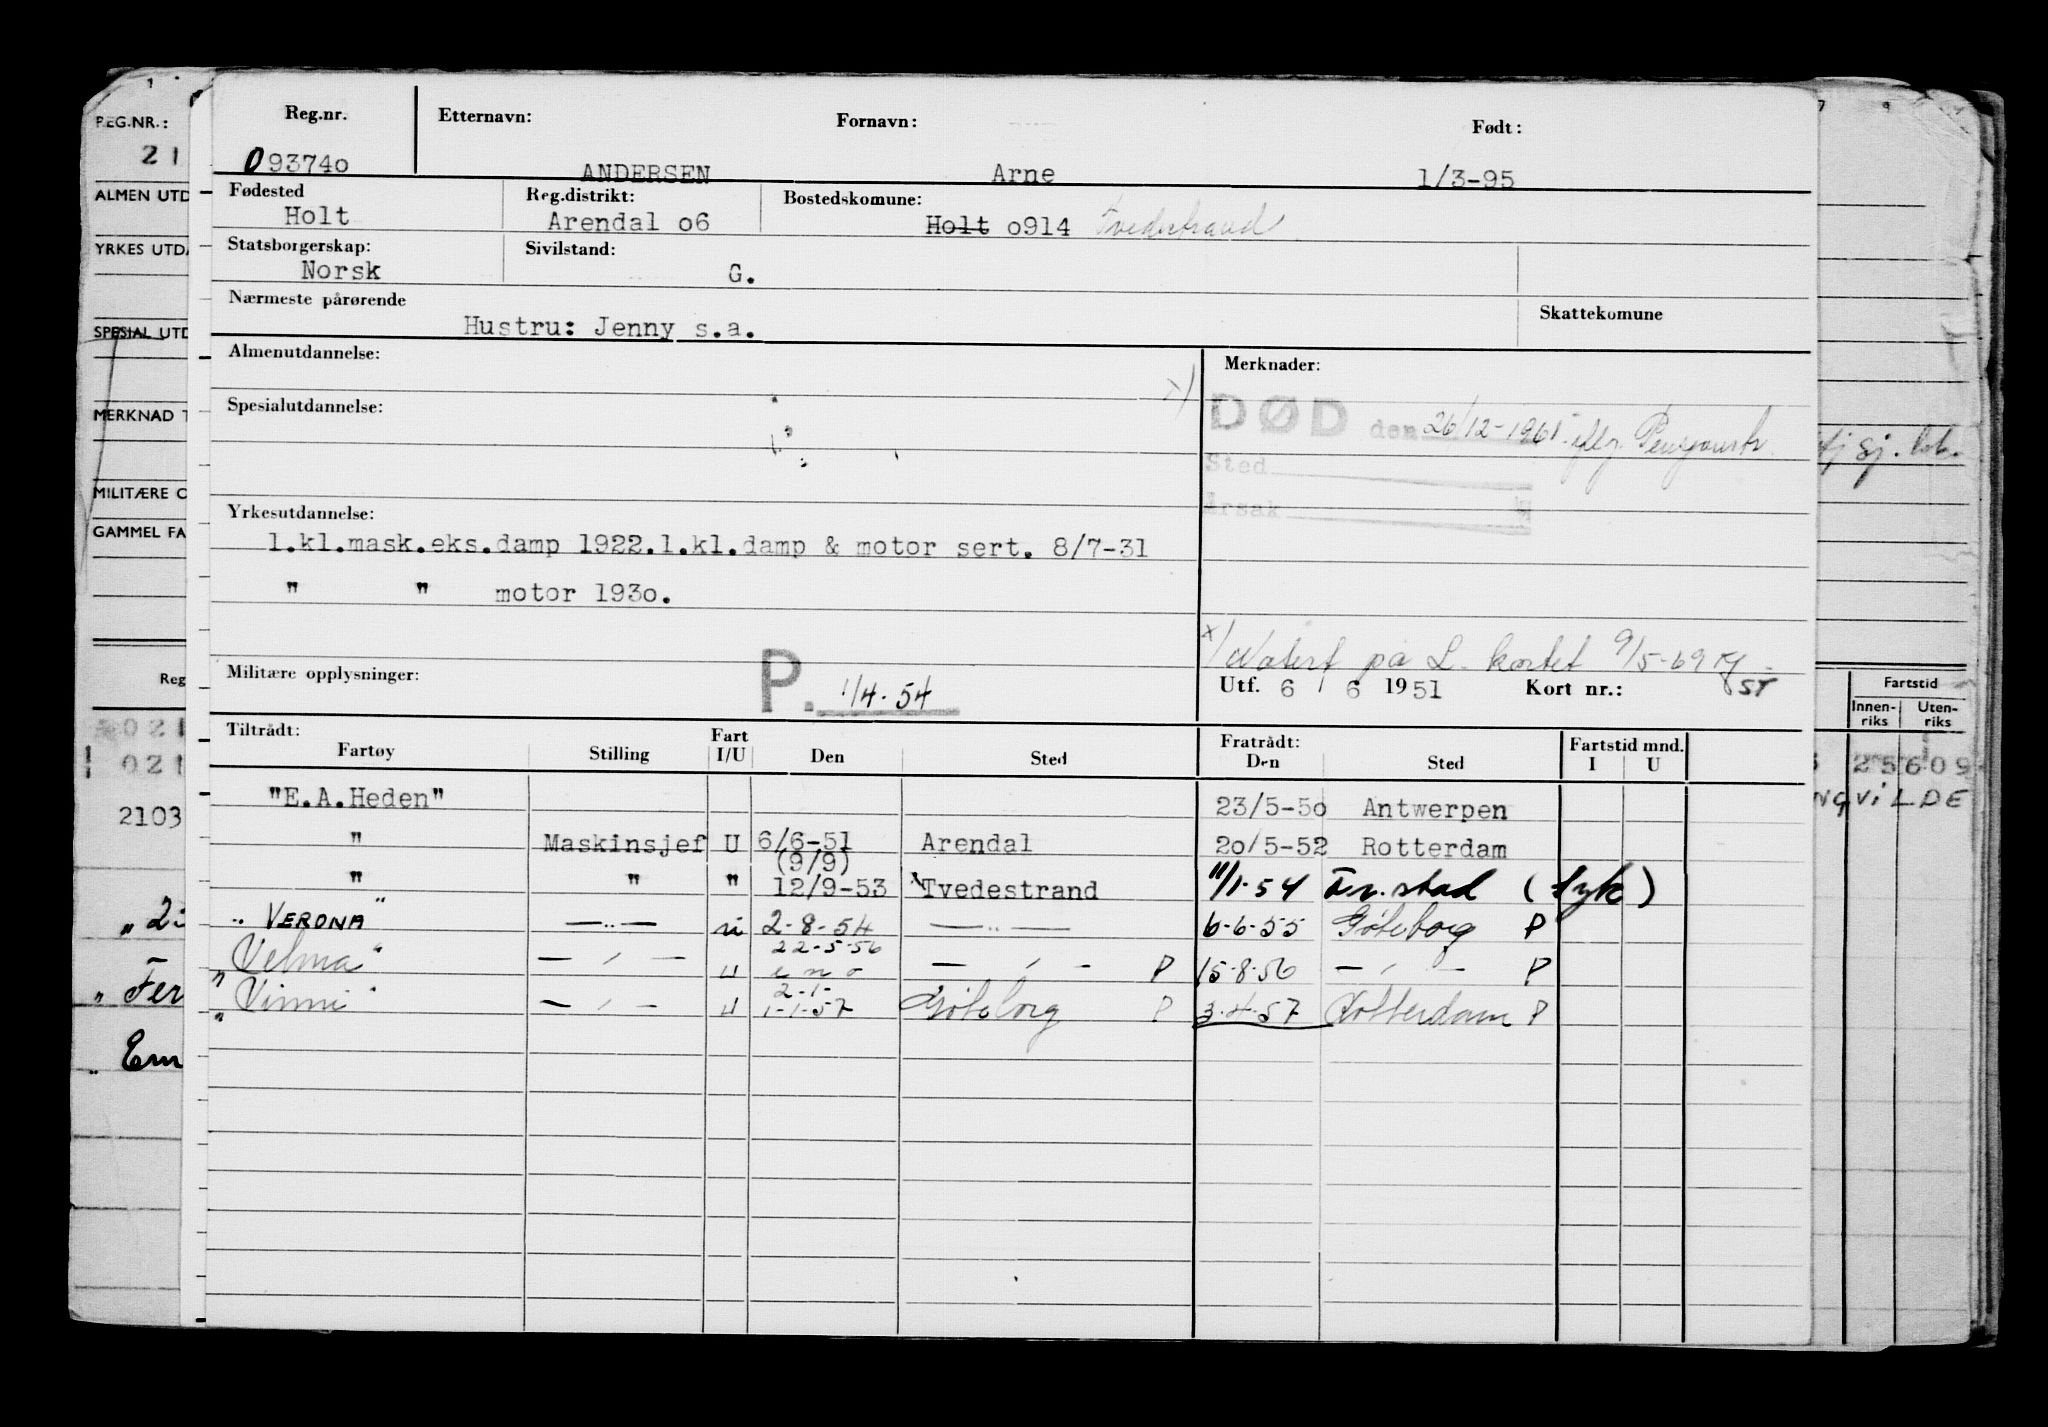 Reg.nr. Etternavn: Fornavn: Født:
093740 ANDERSEN Arne 1/3-95
Fødested Reg.distrikt: Bostedskomune:
Holt Arendal o6 Holt o914 Tvedestrand
Statsborgerskap: Sivilstand:
Norsk G.
Nærmeste pårørende Skattekomune
Hustru: Jenny s.a.
Almenutdannelse: Merknader:
x)
Spesialutdannelse: DØD den 26/12-1961
Sted
Årsak
Yrkesutdannelse:
1.kl.mask.eks.damp 1922.1.kl.damp & motor sert. 8/7-31
" " motor 193o.
x) Notert på L. kortet 9/5-69
Militære opplysninger: P. 1/4-54 Utf. 6 / 6 1951 Kort nr.:
Tiltrådt: Fratrådt: Fartstid mnd.
Fartøy Stilling Fart I/U Den Sted Den Sted I U
"E.A.Heden" 23/5-5o Antwerpen
" Maskinsjef U 6/6-51 Arendal 2o/5-52 Rotterdam
(9/9)
" " " 12/9-53 Tvedestrand 11/1-54 Fr.stad (syk)
"VERONA" —..— u 2-8-54 —..— 6-6-55 Göteborg P
22-5-56
"Velma" — , — u — , — P 15-8-56 — , — P
2-1-
"Vinni" — , — u 1-1-57 Göteborg P 3-4-57 Rotterdam P
REG.NR.:
21
ALMEN UTD
YRKES UTDA
SPESIAL UTD
MERKNAD T
MILITÆRE O
GAMMEL FA
Reg
021
021
2103
"Fer
Em
Fartstid
Innen-riks Uten-riks
25609
VILDE